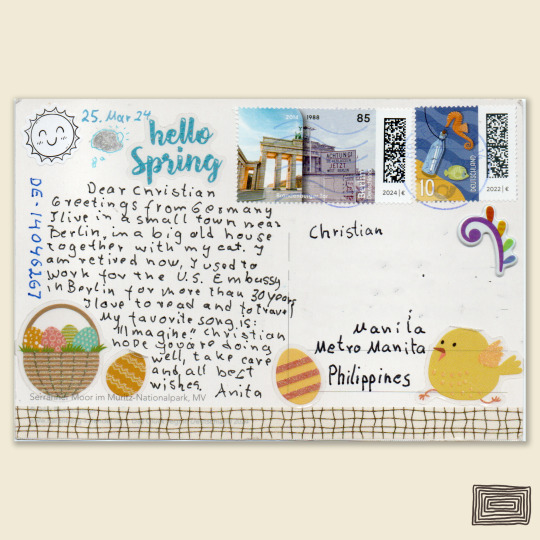 25. Mar 24
8°
hello
Spring
DE-14046267
Dear Christian
Greetings from Germany
I live in a small town near
Berlin, in a big old house
together with my cat. I
am retired now, I used to
work for the U.S. Embassy
in Berlin for more than 30 years
I love to read and to travel
My favorite song is:
"Imagine" Christian
hope you are doing
well, take care
and all best
wishes.
Anita
Serrahner Moor im Müritz-Nationalpark, MV
2024 1988 85
ACHTUNG!
JETZT
Berlin
2024 | €
10
DEUTSCHLAND
2022 | €
Christian
Manila
Metro Manila
Philippines